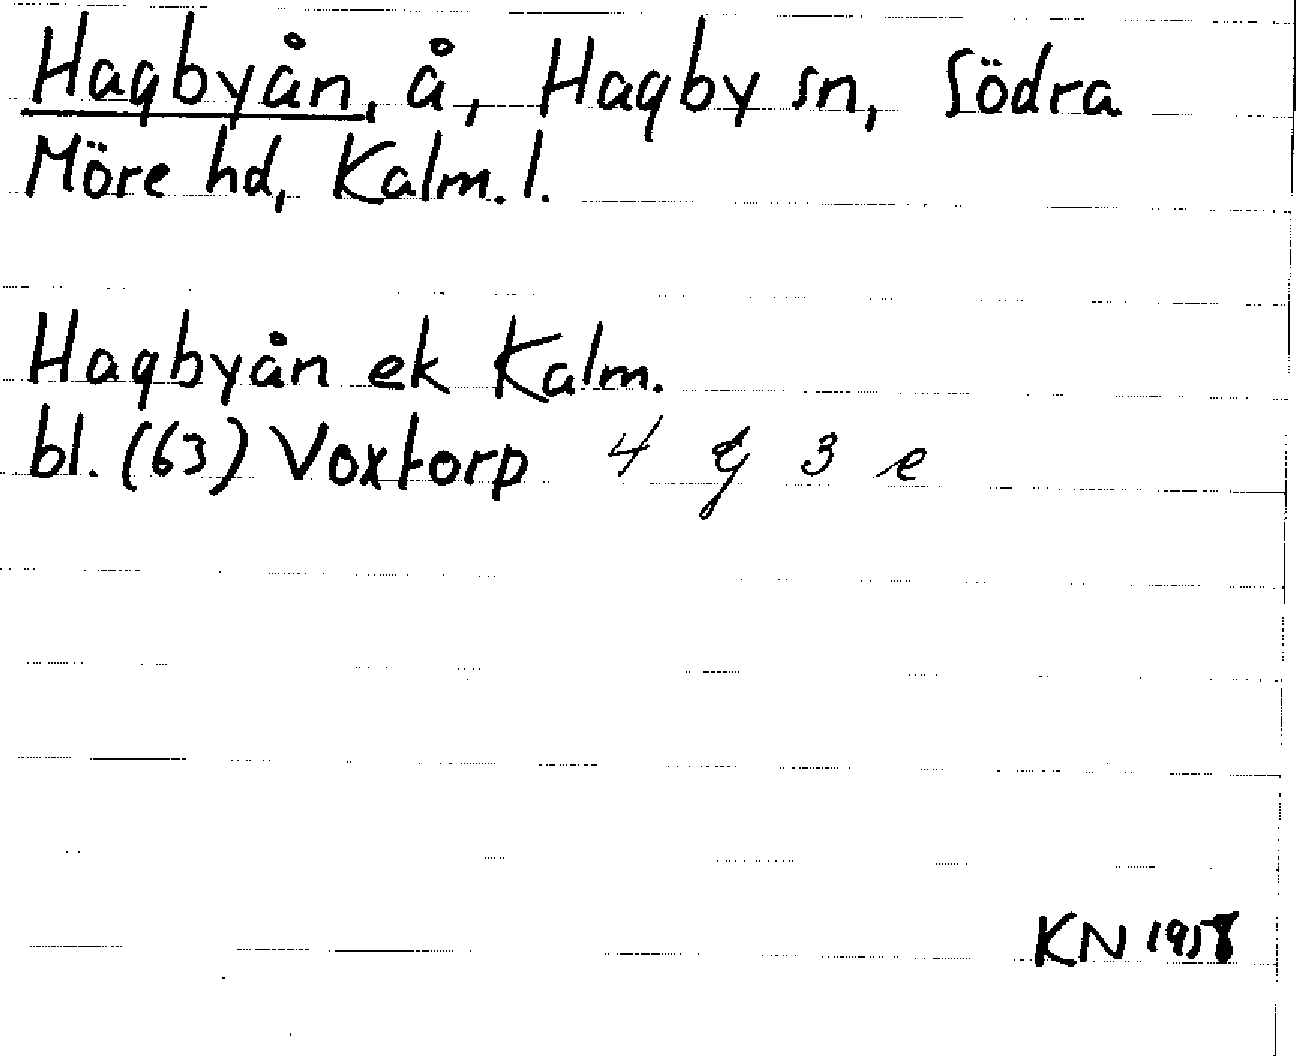 Hagbyån, å, Hagby sn, Södra
Möre hd, Kalm. l.
Hagbyån ek Kalm.
bl. (63) Voxtorp 4 g 3 e
KN 1958